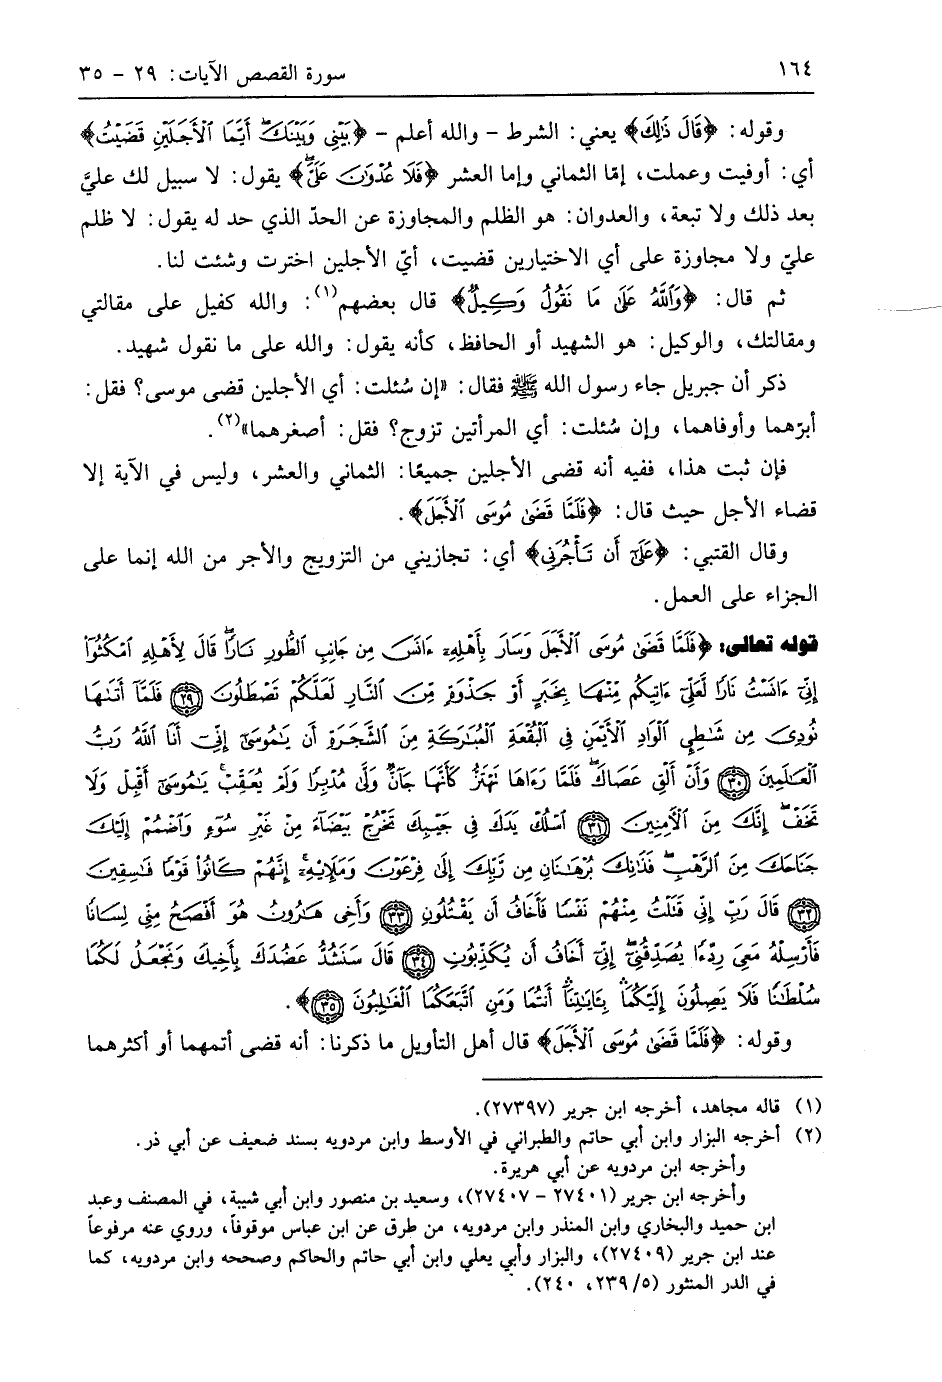 ١٦٤ سورة القصص الآيات: ٢٩ - ٣٥
وقوله: ﴿قَالَ ذَٰلِكَ﴾ يعني: الشرط - والله أعلم - ﴿بَيْنِي وَبَيْنَكَ أَيَّمَا الْأَجَلَيْنِ قَضَيْتُ﴾
أي: أوفيت وعملت، إمّا الثماني وإما العشر ﴿فَلَا عُدْوَانَ عَلَيَّ﴾ يقول: لا سبيل لك عليَّ
بعد ذلك ولا تبعة، والعدوان: هو الظلم والمجاوزة عن الحدّ الذي حد له يقول: لا ظلم
عليّ ولا مجاوزة على أي الاختيارين قضيت، أيّ الأجلين اخترت وشئت لنا.
ثم قال: ﴿وَاللَّهُ عَلَىٰ مَا نَقُولُ وَكِيلٌ﴾ قال بعضهم(١): والله كفيل على مقالتي
ومقالتك، والوكيل: هو الشهيد أو الحافظ، كأنه يقول: والله على ما نقول شهيد.
ذكر أن جبريل جاء رسول الله ﷺ فقال: «إن سُئلت: أي الأجلين قضى موسى؟ فقل:
أبرّهما وأوفاهما، وإن سُئلت: أي المرأتين تزوج؟ فقل: أصغرهما»(٢).
فإن ثبت هذا، ففيه أنه قضى الأجلين جميعًا: الثماني والعشر، وليس في الآية إلا
قضاء الأجل حيث قال: ﴿فَلَمَّا قَضَىٰ مُوسَى الْأَجَلَ﴾.
وقال القتبي: ﴿عَلَىٰ أَن تَأْجُرَنِي﴾ أي: تجازيني من التزويج والأجر من الله إنما على
الجزاء على العمل.
قوله تعالى: ﴿فَلَمَّا قَضَىٰ مُوسَى الْأَجَلَ وَسَارَ بِأَهْلِهِ ءَانَسَ مِن جَانِبِ الطُّورِ نَارًا قَالَ لِأَهْلِهِ امْكُثُوا
إِنِّي ءَانَسْتُ نَارًا لَّعَلِّي ءَاتِيكُم مِّنْهَا بِخَبَرٍ أَوْ جَذْوَةٍ مِّنَ النَّارِ لَعَلَّكُمْ تَصْطَلُونَ ﴿٢٩﴾ فَلَمَّا أَتَاهَا
نُودِيَ مِن شَاطِئِ الْوَادِ الْأَيْمَنِ فِي الْبُقْعَةِ الْمُبَارَكَةِ مِنَ الشَّجَرَةِ أَن يَا مُوسَىٰ إِنِّي أَنَا اللَّهُ رَبُّ
الْعَالَمِينَ ﴿٣٠﴾ وَأَنْ أَلْقِ عَصَاكَ فَلَمَّا رَءَاهَا تَهْتَزُّ كَأَنَّهَا جَانٌّ وَلَّىٰ مُدْبِرًا وَلَمْ يُعَقِّبْ يَا مُوسَىٰ أَقْبِلْ وَلَا
تَخَفْ إِنَّكَ مِنَ الْآمِنِينَ ﴿٣١﴾ اسْلُكْ يَدَكَ فِي جَيْبِكَ تَخْرُجْ بَيْضَاءَ مِنْ غَيْرِ سُوءٍ وَاضْمُمْ إِلَيْكَ
جَنَاحَكَ مِنَ الرَّهْبِ فَذَانِكَ بُرْهَانَانِ مِن رَّبِّكَ إِلَىٰ فِرْعَوْنَ وَمَلَإِيْهِ إِنَّهُمْ كَانُوا قَوْمًا فَاسِقِينَ
﴿٣٢﴾ قَالَ رَبِّ إِنِّي قَتَلْتُ مِنْهُمْ نَفْسًا فَأَخَافُ أَن يَقْتُلُونِ ﴿٣٣﴾ وَأَخِي هَارُونُ هُوَ أَفْصَحُ مِنِّي لِسَانًا
فَأَرْسِلْهُ مَعِيَ رِدْءًا يُصَدِّقُنِي إِنِّي أَخَافُ أَن يُكَذِّبُونِ ﴿٣٤﴾ قَالَ سَنَشُدُّ عَضُدَكَ بِأَخِيكَ وَنَجْعَلُ لَكُمَا
سُلْطَانًا فَلَا يَصِلُونَ إِلَيْكُمَا بِآيَاتِنَا أَنتُمَا وَمَنِ اتَّبَعَكُمَا الْغَالِبُونَ ﴿٣٥﴾﴾.
وقوله: ﴿فَلَمَّا قَضَىٰ مُوسَى الْأَجَلَ﴾ قال أهل التأويل ما ذكرنا: أنه قضى أتمهما أو أكثرهما
(١) قاله مجاهد، أخرجه ابن جرير (٢٧٣٩٧).
(٢) أخرجه البزار وابن أبي حاتم والطبراني في الأوسط وابن مردويه بسند ضعيف عن أبي ذر.
وأخرجه ابن مردويه عن أبي هريرة.
وأخرجه ابن جرير (٢٧٤٠١ - ٢٧٤٠٧)، وسعيد بن منصور وابن أبي شيبة، في المصنف وعبد
ابن حميد والبخاري وابن المنذر وابن مردويه، من طرق عن ابن عباس موقوفاً، وروي عنه مرفوعاً
عند ابن جرير (٢٧٤٠٩)، والبزار وأبي يعلي وابن أبي حاتم والحاكم وصححه وابن مردويه، كما
في الدر المنثور (٥/ ٢٣٩، ٢٤٠).